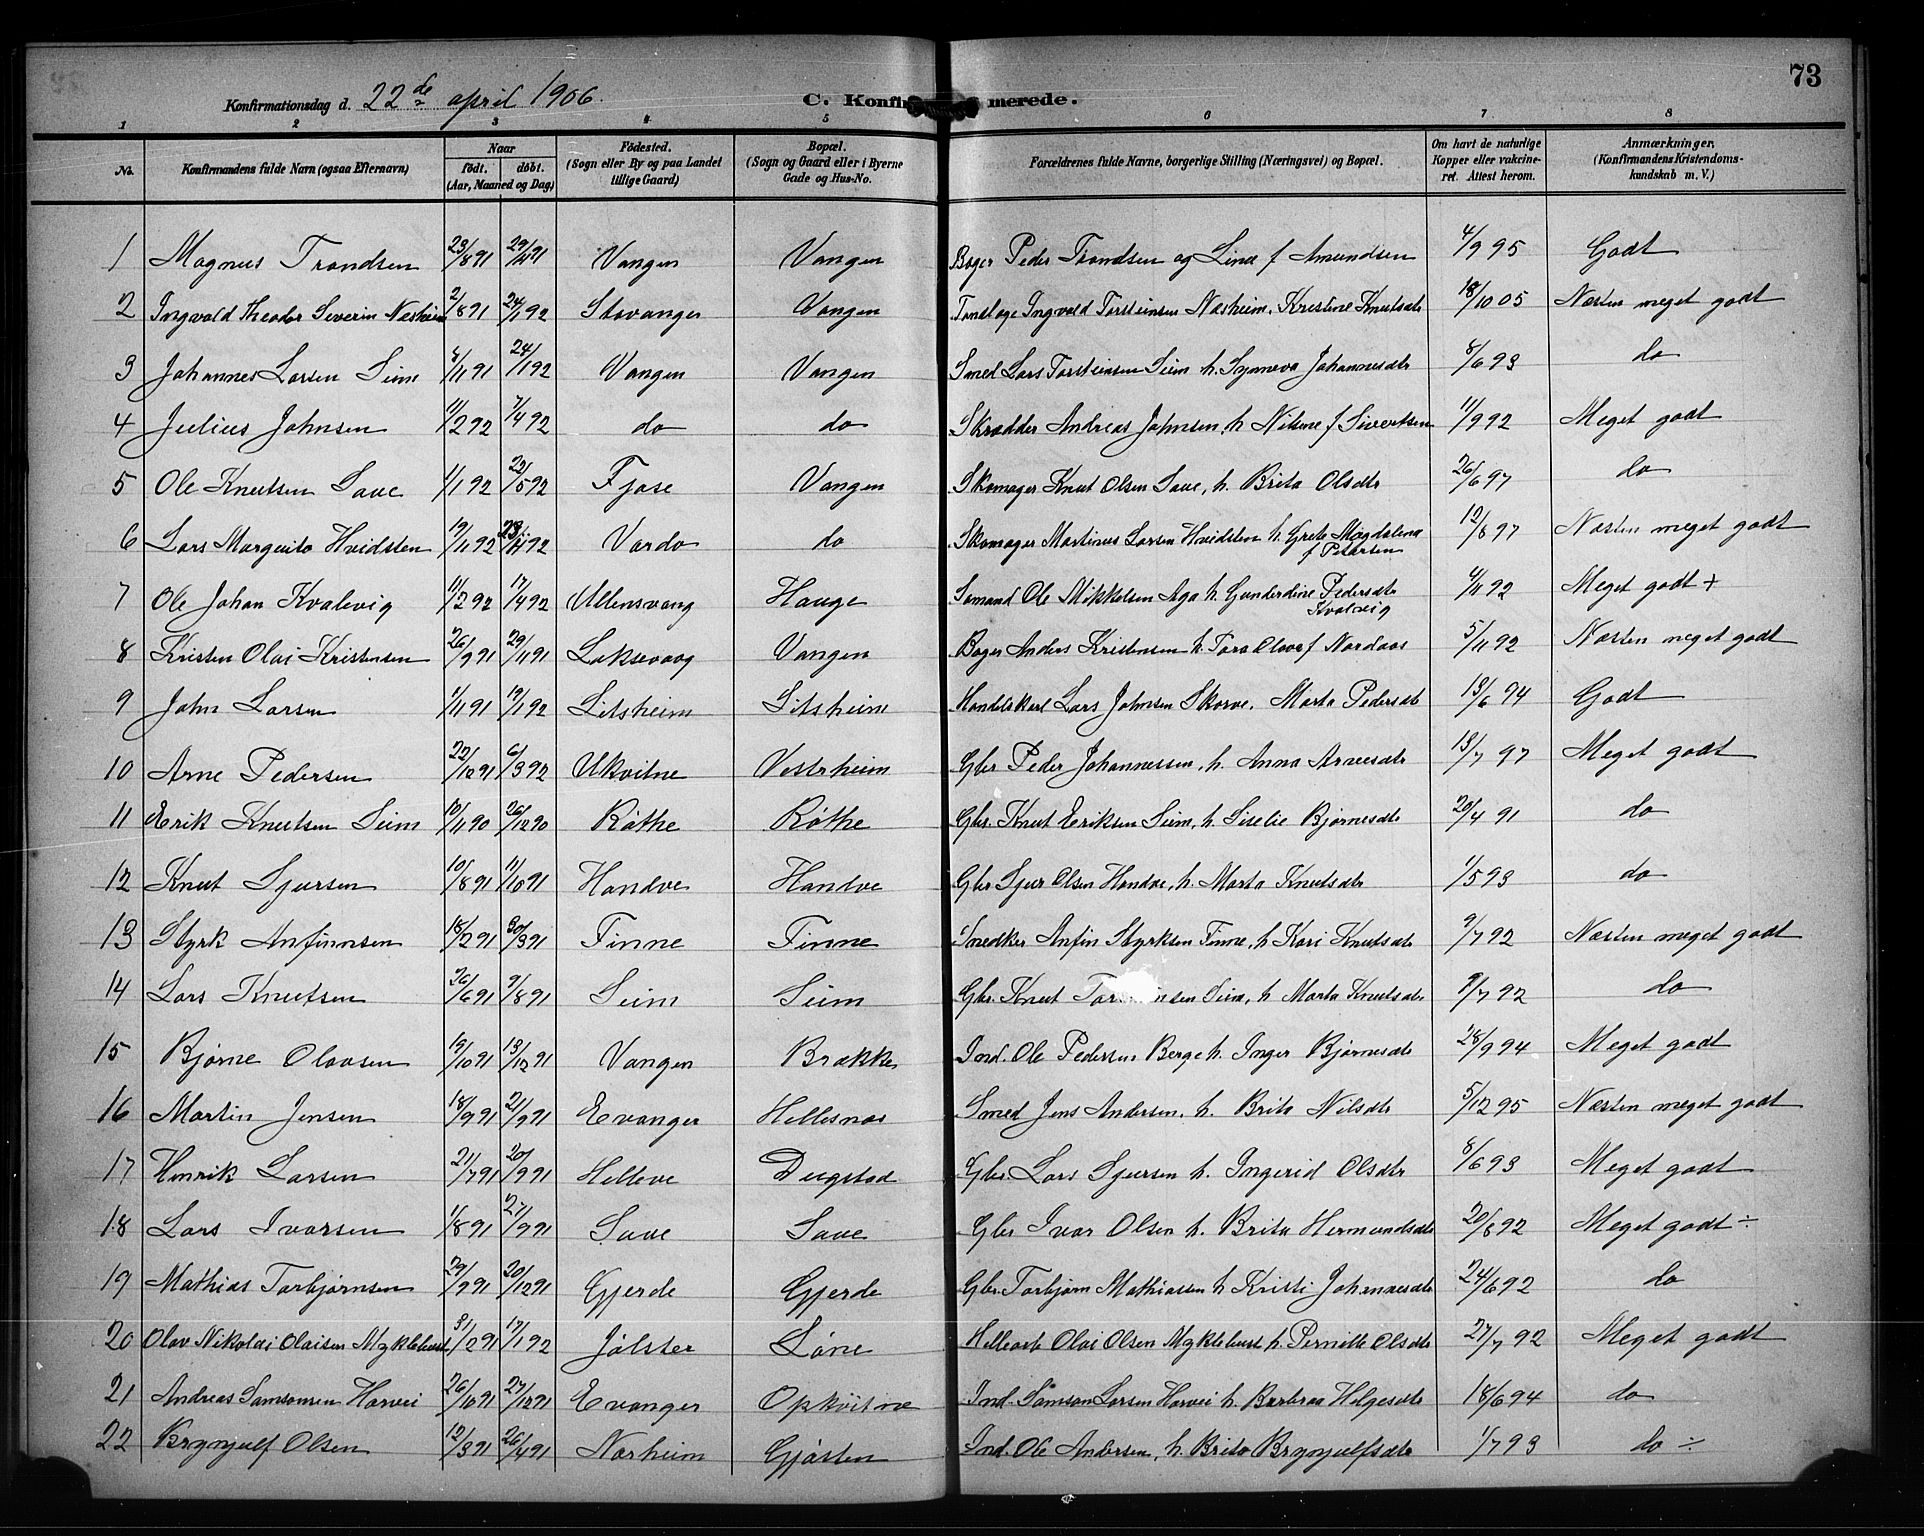 73
Konfirmationsdag d. 22de april 1906. C. Konfirmerede.
1 2 3 4 5 6 7 8
No. Konfirmandens fulde Navn (ogsaa Efternavn) Naar født. døbt. (Aar, Maaned og Dag) Fødested. (Sogn eller By og paa Landet tillige Gaard) Bopæl. (Sogn og Gaard eller i Byerne Gade og Hus-No. Forældrenes fulde Navne, borgerlige Stilling (Næringsvei) og Bopæl. Om havt de naturlige Kopper eller vakcineret. Attest herom. Anmærkninger, (Konfirmandens Kristendomskundskab m. V.)
1 Magnus Trondsen 23/8 91 29/11 91 Vangen Vangen Bager Peder Trondsen og Lina f Amundsen 4/9 95 Godt
2 Ingvald Theodor Severin Næsheim 2/8 91 24/1 92 Stavanger Vangen Tandlæge Ingvald Torsteinsen Næsheim, Kristine Knutsdtr 18/10 05 Næsten meget godt
3 Johannes Larsen Seim 8/11 91 24/1 92 Vangen Vangen Smed Lars Torsteinsen Seim h. Synneva Johannesdtr 8/6 93 do
4 Julius Johnsen 11/2 92 7/4 92 do do Skrædder Andreas Johnsen, h Nilsine f Sivertsen 11/9 92 Meget godt
5 Ole Knutsen Saue 1/1 92 22/5 92 Fjose Vangen Skomager Knut Olsen Saue, h. Brita Olsdtr 26/6 97 do
6 Lars Margido Hvidsten 19/11 92 Vardø do Skomager Martinus Larsen Hvidsten h. Grete Magdalena f Petersen 12/8 97 Næsten meget godt
7 Ole Johan Kvalevig 11/2 92 17/4 92 Ullensvang Hauge Sømand Ole Mikkelsen Aga h. Gunderdine Pedersdtr Kvalevig 4/11 92 Meget godt +
8 Kristen Olai Kristensen 26/9 91 29/11 91 Laksevaag Vangen Bager Anders Kristensen h. Tora Olava f Nordaas 5/11 92 Næsten meget godt
9 John Larsen 1/11 91 19/1 92 Litsheim Litsheim Handelskarl Lars Johnsen Skorve, Marta Pedersdtr 13/6 94 Godt
10 Arne Pedersen 22/12 91 6/3 92 Ukvitne Vesterheim Gbr Peder Johannessen, h. Anna Arnesdtr 13/7 97 Meget godt
11 Erik Knutsen Seim 10/11 90 26/12 90 Røthe Røthe Gbr. Knut Eriksen Seim, h. Siselie Bjørnesdtr 20/4 91 do
12 Knut Sjursen 10/8 91 11/10 91 Handve Handve Gbr Sjur Olsen Handve, h. Marta Knutsdtr 1/5 93 do
13 Styrk Anfinnsen 18/2 91 30/3 91 Finne Finne Snedker Anfin Styrksen Finne, h Kari Knutsdtr 9/7 92 Næsten meget godt
14 Lars Knutsen 26/6 91 9/8 91 Seim Seim Gbr. Knut Seim, h Marta Knutsdtr 9/7 92 do
15 Bjørne Olavsen 19/10 91 13/12 91 Vangen Brække Ind. Ole Pedersen Berge h. Inger Bjørnesdtr 28/9 94 Meget godt
16 Martin Jensen 18/9 91 21/9 91 Evanger Hellesnæs Smed Jens Andersen, h. Brita Nilsdtr 5/12 95 Næsten meget godt
17 Henrik Larsen 21/7 91 20/9 91 Helleve Dugstad Gbr. Lars Sjursen h. Ingerid Olsdtr 8/6 93 Meget godt
18 Lars Ivarsen 1/8 91 27/9 91 Saue Saue Gbr Ivar Olsen h. Brita Hermundsdtr 20/8 92 Meget godt ÷
19 Mathias Torbjørnsen 29/9 91 20/12 91 Gjerde Gjerde Gbr. Torbjørn Mathiassen h Kristi Johannesdtr 24/6 92 do
20 Olav Nikolai Olaisen Myklebust 31/12 91 17/1 92 Jølster Løne Olai Olsen Myklebust h. Pernille Olsdtr 27/7 92 Meget godt
21 Andreas Samsonsen Horvei 26/10 91 27/12 91 Evanger Opkvitne Ind. Samson Larsen Horvei h Barbraa Helgesdtr 18/6 94 do
22 Brynjulf Olsen 12/3 91 26/4 91 Nørheim Gjøsten Ind. Ole Andersen, h. Brita Brynjulfsdtr 1/7 93 do ÷